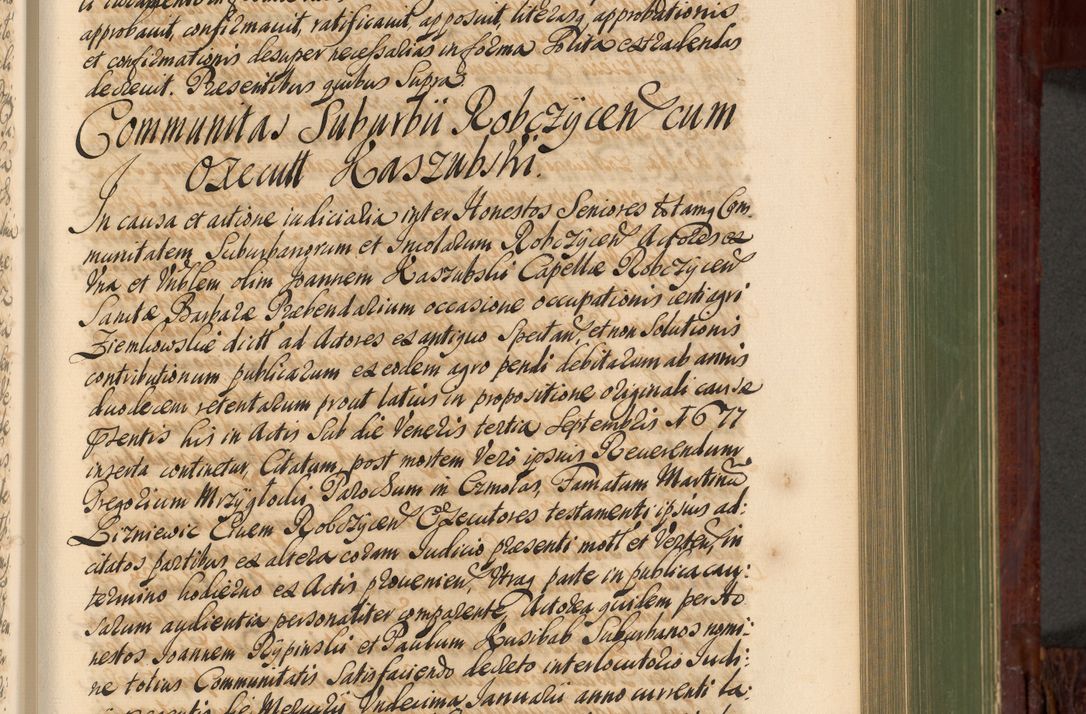 approbavit, confirmavit, ratificavit, apposuit, literasq approbationis
et confirmationis desuper necessarias in forma solita extradendas
decrevit. Presentibus quibus supra.
Communitas Suburbii Robczÿcen cum
Execut Kaszubski.
In causa et actione iudicialia inter Honestos Seniores totamq Com-
munitatem Suburbanorum et Incolarum Robczÿcen Actores ex
Vna et Vnblem olim Joannem Kaszubski Capellæ Robczÿcen
Sanctæ Barbaræ Præbendarium occasione occupationis certi agri
Ziemkowskie dicti ad Actores ex antiquo spectan et non Solutionis
contributionum publicarum ex eodem agro pendi debitarum ab annis
duodecem retentarum prout latius in propositione originali causæ
psentis his in Actis sub die Veneris tertia Septembris 1677
inserta continetur, Citatum, post mortem vero ipsius Reuerendum
Gregorium Mrzÿglocki Parochum in Czmolas, Famatum Martinu
Lizniewic Ciuem Robczÿcen Executores testamenti ipsius ad:
citatos partibus ex altera coram Iudicio præsenti mot et verten, in
termino hodierno ex Actis provenien, Vtraq parte in publica cau:
sarum audientia personaliter comparente, Actorea quidem per Ho
nestos Joannem Rÿpinski et Paulum Kusibab Suburbanos nomi:
ne totius Communitatis Satisfaciendo decreto interlocutorio Iudi:
die Mercurii Vndecima Januarii anno currenti la: